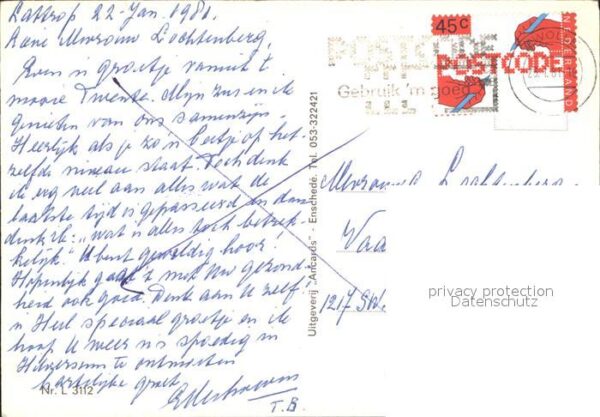 Lattrop 22-Jan. 1981.
Lieve Mevrouw Lochtenberg,
Even 'n groetje vanuit 't
mooie Twente. Mijn zus en ik
genieten van ons samenzijn.
Heerlijk als je zo'n beetje op het-
zelfde niveau staat. Toch denk
ik erg veel aan alles wat de
laatste tijd is gepasseerd en dan
denk ik: "wat is alles toch betrek-
kelijk". U bent geweldig hoor!
Hopenlijk gaat 't met Uw gezond-
heid ook goed. Denk aan U zelf!
'n Heel speciaal groetje en ik
hoop U weer 'ns spoedig in
Hilversum te ontmoeten
hartelijke groet
T.B.
Nr. L 3112
Uitgeverij "Ancards" - Enschedé. Tel. 053-322421
POSTCODE
Gebruik 'm goed
45c
POSTCODE
NEDERLAND
Mevrouw Lochtenberg
Vaa
1217 SW.
privacy protection
Datenschutz